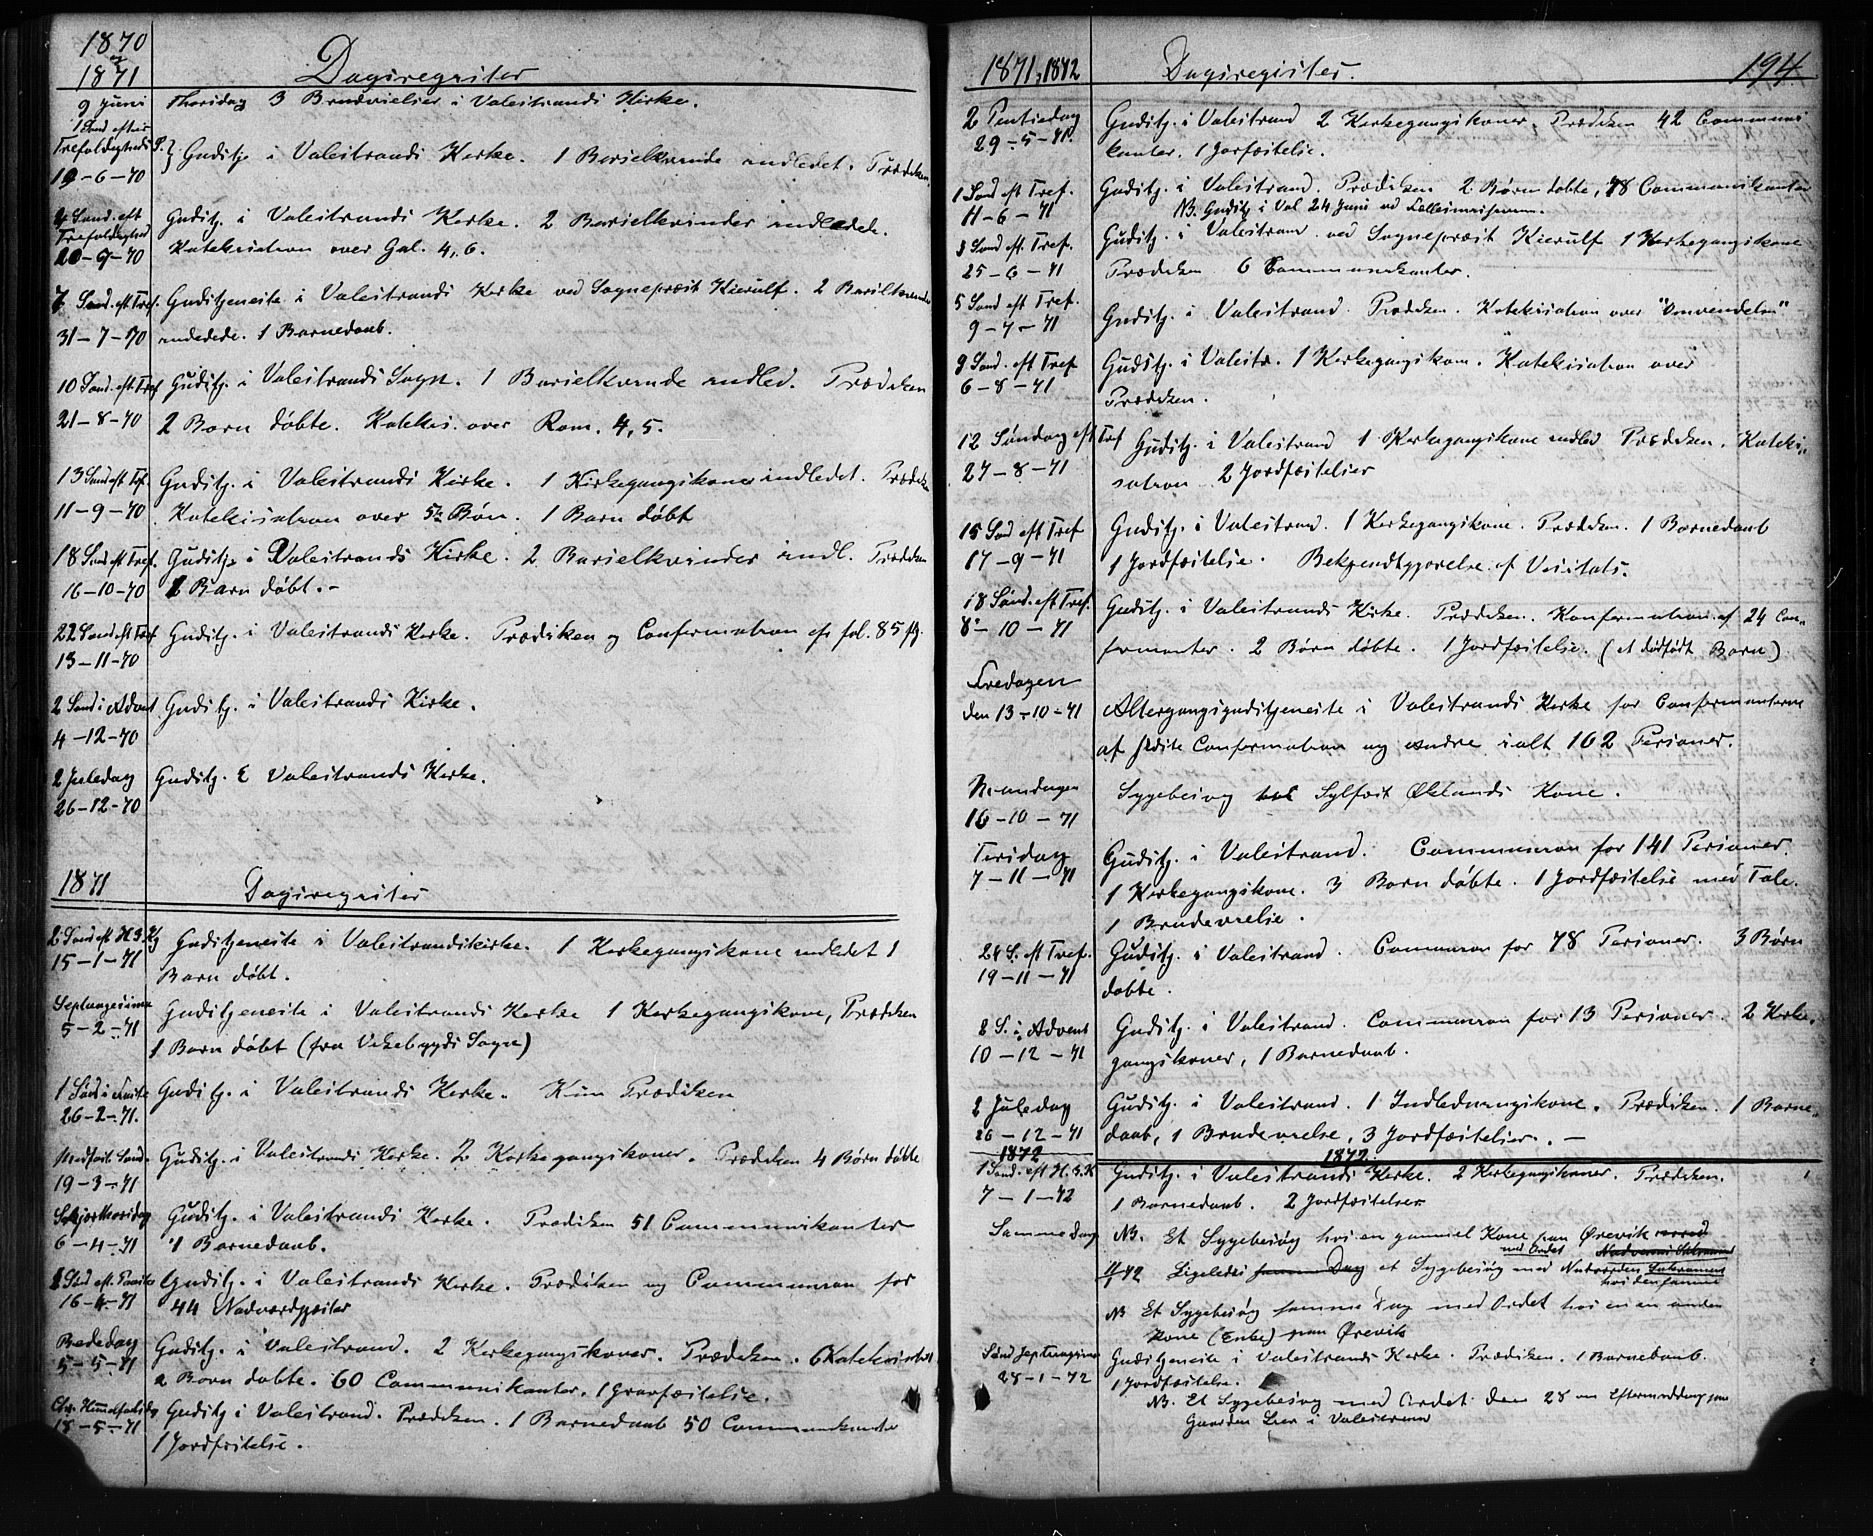 1870
og
1871
Dagsregister
9 Juni Thorsdag 3 Brudevielser i Valestrands Kirke.
1 Sønd efter
Trefoldigheds S. Gudstj. i Valestrands Kirke. 1 Barselkvinde indledet. Prædiken.
12-6-70
Sønd. eft Gudstj. i Valestrands Kirke. 2 Barselkvinder indledede.
Trefoldighed
-70 Katekisation over Gal. 4, 6.
7 Sønd. eft Tref. Gudstjeneste i Valestrands Kirke ved Sognepræst Kierulf. 2 Barselkvinder
31-7-70 indledede. 1 Barnedaab.
10 Sønd. eft Tref Gudstj. i Valestrands Sogn. 1 Barselkvinde indled. Prædiken
21-8-70 2 Børn døbte. Katekis. over Rom. 4, 5.
13 Sønd eft Tref. Gudstj. i Valestrands Kirke. 1 Kirkegangskone indledet. Prædiken
11-9-70 Katekisation over 5te Bøn. 1 Barn døbt
18 Sønd eft Tref. Gudstj. i Valestrands Kirke. 2 Barselkvinder indl. Prædiken
16-10-70 1 Barn døbt. -
22 Sønd eft Tref Gudstj. i Valestrands Kirke. Prædiken og Confirmation cfr fol. 85 flg.
13-11-70
2 Sønd i Advent Gudstj. i Valestrands Kirke.
4-12-70
2 Juledag Gudstj. i Valestrands Kirke.
26-12-70
1871 Dagsregister
2 Sønd eft H. 3 Kg Gudstjeneste i Valestrandskirke. 1 Kirkegangskone indledet 1
15-1-71 Barn døbt.
Septuagesima Gudstjeneste i Valestrands Kirke 1 Kirkegangskone, Prædiken
5-2-71 1 Barn døbt (fra Vikebygds Sogn)
1 Sønd i Faste Gudstj. i Valestrands Kirke. Kun Prædiken
26-2-71.
Midfaste Sønd. Gudstj. i Valestrands Kirke. 2 Kirkegangskoner. Prædiken 4 Børn døbte
19-3-71
Skjærthorsdag Gudstj. i Valestrands Kirke. Prædiken 51 Communikanter
6-4-71 1 Barnedaab.
1 Sønd eft. Paaske Gudstj. i Valestrands Kirke. Prædiken og Communion for
16-4-71 44 Nadverdgjæster
Bededag Gudstj. i Valestrand. 2 Kirkegangskoner. Prædiken. Katekisation
5-5-71 2 Børn døbte. 60 Communikanter. 1 Gravfæstelse.
Chr. Himmelfartsdag Gudstj i Valestrand. Prædiken. 1 Barnedaab 50 Communikanter
18-5-71 1 Jordfæstelse.
1871, 1872 Dagsregister. 194
2 Pentsedag Gudstj. i Valestrand 2 Kirkegangskoner. Prædiken 42 Communi
29-5-71. kanter. 1 Jorfæstelse.
1 Sønd eft Tref. Gudstj. i Valestrand. Prædiken 2 Børn døbte, 78 Communikanter
11-6-71 NB. Gudstj i Val 24 Juni ved
3 Sønd eft Tref. Gudstj. i Valestrand ved Sognepræst Kierulf 1 Kirkegangskone
25-6-71 Prædiken 6 Communikanter.
5 Sønd eft Tref. Gudstj. i Valestrand. Prædiken. Katekisation over "Omvendelsen"
9-7-71
9 Sønd. eft Tref Gudstj. i Valestr. 1 Kirkegangskone. Katekisation over
6-8-71 Prædiken.
12 Søndag eft Tref Gudstj. i Valestrand 1 Kirkegangskone indled Prædiken. Kateki-
27-8-71 sation 2 Jordfæstelser
15 Sønd eft Tref Gudstj. i Valestrand. 1 Kirkegangskone. Prædiken. 1 Barnedaab
17-9-71 1 Jordfæstelse. Bekjendtgjørelse af Visitats.
18 Sønd. eft Tref. Gudstj. i Valestrands Kirke. Prædiken. Konfirmation af 24 Con-
8-10-71 firmanter. 2 Børn døbte. 1 Jordfæstelse. (et dødfødt Barn)
Fredagen
den 13-10-71 Altergangsgudstjeneste i Valestrands Kirke for Confirmanterne
af sidste Confirmation og andre ialt 102 Personer.
Mandagen Sygebesøg hos Sylfæst Øklands Kone.
16-10-71
Tirsdag Gudstj. i Valestrand. Communion for 141 Personer.
7-11-71 1 Kirkegangskone. 3 Børn døbte. 1 Jordfæstelse med Tale.
1 Brudevielse.
24 S. eft Tref. Gudstj. i Valestrand. Communion for 78 Personer. 3 Børn
19-11-71 døbte.
2 S. i Advent Gudstj. i Valestrand. Communion for 13 Personer. 2 Kirke-
10-12-71 gangskoner, 1 Barnedaab.
2 Juledag Gudstj. i Valestrand. 1 Indledningskone. Prædiken. 1 Barne-
26-12-71 daab, 1 Brudevielse, 3 Jordfæstelser. -
1872 1872.
1 Sønd. eft H. 3. K Gudstj. i Valestrands Kirke. 2 Kirkegangskoner. Prædiken.
7-1-72 1 Barnedaab. 2 Jordfæstelser
Samme Dag NB. Et Sygebesøg hos en gammel Kone paa Ørevik
med Ordet Nadverens Sakrament
11/1 72 Ligeledes samme Dag et Sygebesøg med Nadverdens Sakrament
hos den samme
NB Et Sygebesøg samme Dag med Ordet hos en anden
Kone (Enke) paa Ørevik
Sønd Septuagesima Gudstjeneste i Valestrands Kirke. Prædiken. 1 Barnedaab.
28-1-72 1 Jordfæstelse.
NB. Et Sygebesøg med Ordet den 28 om Eftermiddag paa
Gaarden Lier i Valestrand